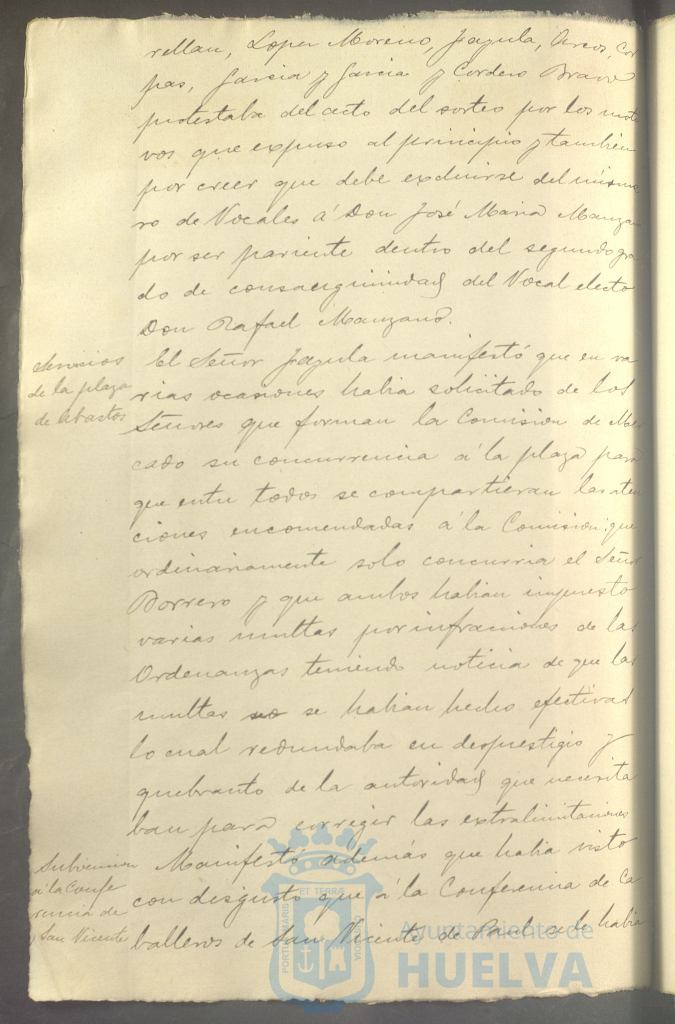 rellan, Lopez Moreno, Jazula, Arcos, Cor
pas, Garcia y Garcia y Cordero Bravo
protestaba del acto del sorteo por los moti
vos que expuso al principio y también
por creer que debe excluirse del núme
ro de Vocales á Don José Maria Manza
por ser pariente dentro del segundo gra
do de consanguinidad del Vocal electo
Don Rafael Manzano.
Servicios
de la plaza
de Abastos
El Señor Jazula manifestó que en va
rias ocasiones habia solicitado de los
Señores que forman la Comision de Mer
cado su concurrencia á la plaza para
que entre todos se compartieran las aten
ciones encomendadas á la Comision: que
ordinariamente solo concurria el Señor
Borrero y que ambos habian impuesto
varias multas por infracciones de las
Ordenanzas teniendo noticia de que las
multas no se habian hecho efectivas
lo cual redundaba en desprestigio y
quebranto de la autoridad que necesita
ban para corregir las extralimitaciones
Subvencion
á la Confe
rencia de
San Vicente
Manifestó además que habia visto
con disgusto que á la Conferencia de Ca
balleros de San Vicente de Paul se le habia
PORTUS MARIS
ET TERRÆ
CUSTODIA
Ayuntamiento de
HUELVA